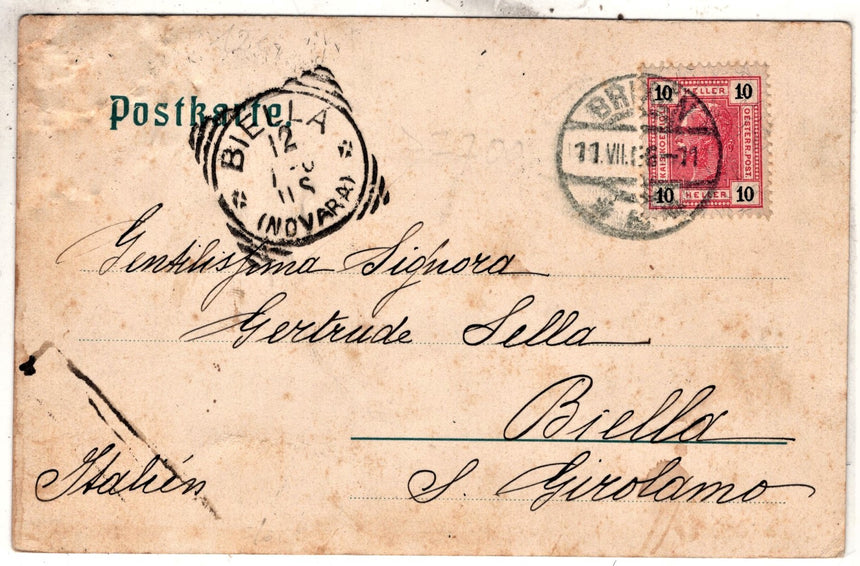 Postkarte.
BIELLA
12
(NOVARA)
BRIXEN
11.VII.
-11
10 HELLER 10
KAIS.KOENIGL.
OESTERR.POST
10 HELLER 10
Gentilissima Signora
Gertrude Sella
Biella
Italien
S. Girolamo